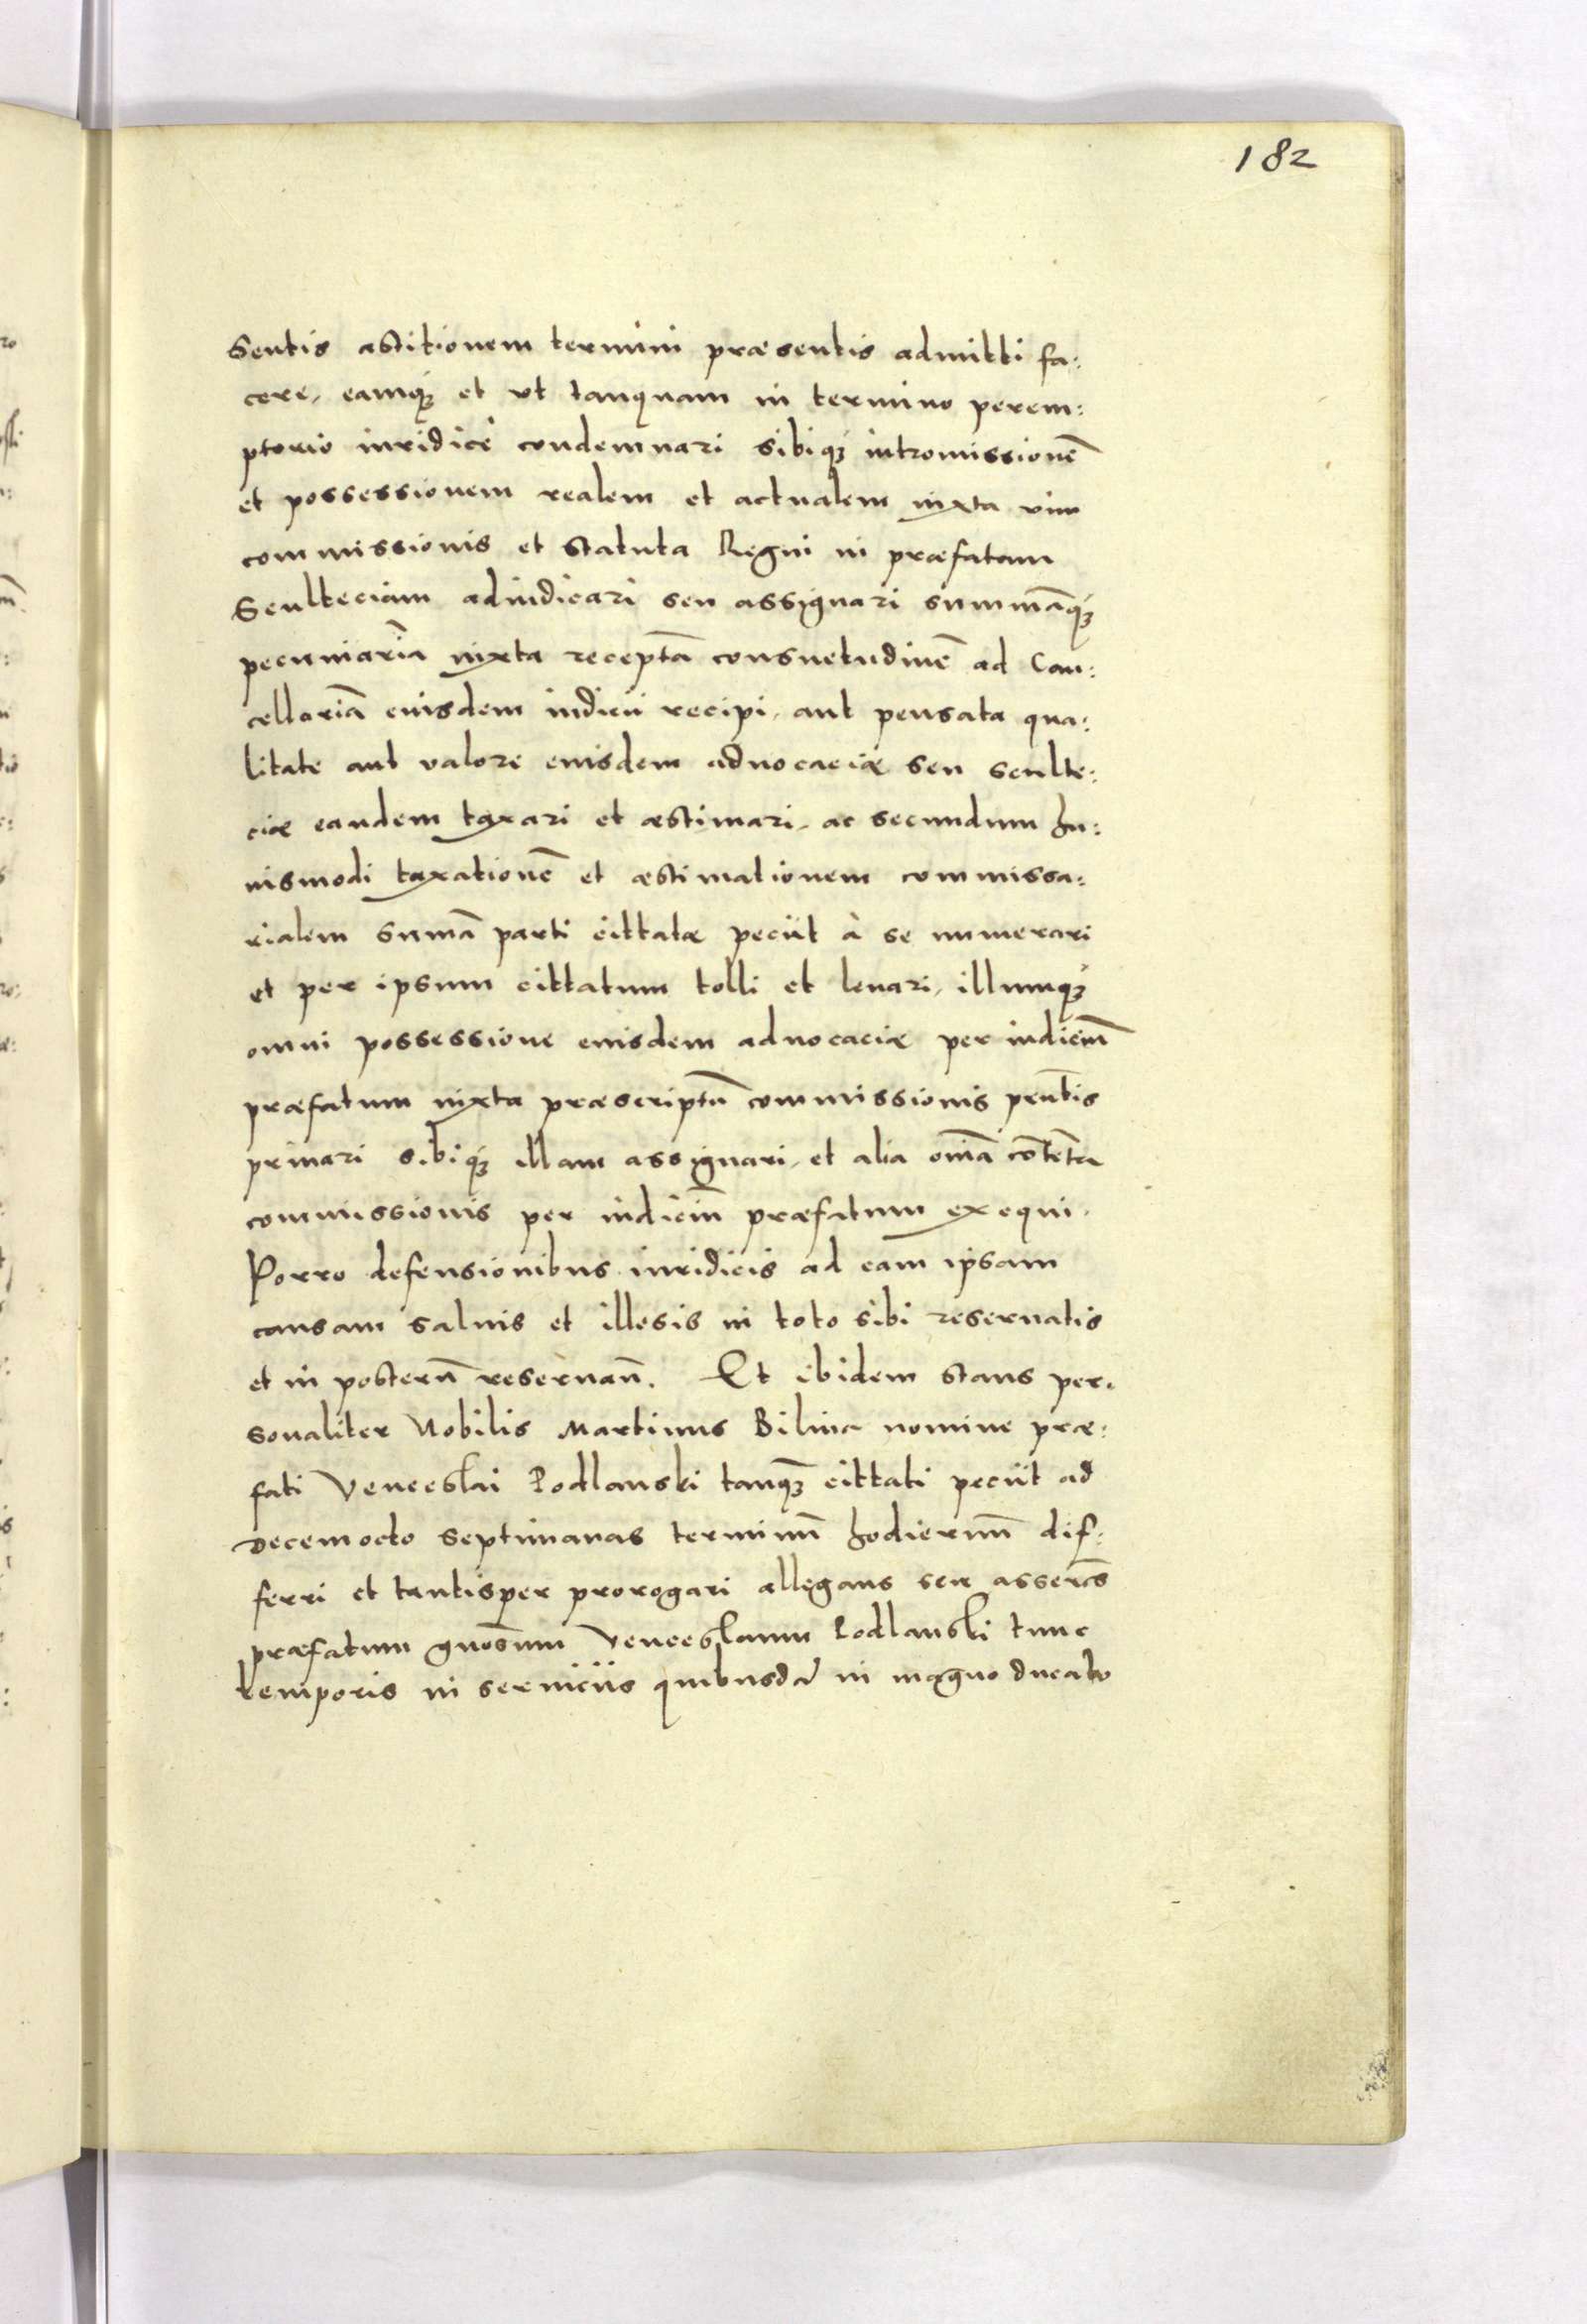 182
sentis astitionem termini præsentis admitti fa:
cere, eamq₃ et vt tanquam in termino perem:
ptorio iuridicè condemnari sibiq₃ intromissionē
et possessionem realem et actualem iuxta vim
commissionis et statuta Regni in præfatam
Sculteciam adiudicari seu assignari summāq₃
pecuniariā iuxta receptā consuetudinē ad Can:
cellariā eiusdem iudicii recipi, aut pensata qua:
litate aut valore eiusdem aduocaciæ seu sculte:
ciæ eandem taxari et æstimari, ac secundum hu:
iusmodi taxationē et æstimationem commissa:
rialem sumā parti cittatæ peciit à se numerari
et per ipsum cittatum tolli et leuari, illumq₃
omni possessione eiusdem aduocaciæ per iudiciū
præfatum iuxta præscriptū commissionis prntis
priuari sibiq₃ illam assignari, et alia omīa cōtēta
commissionis per iudiciū præfatum exequi.
Porro defensionibus iuridicis ad eam ipsam
causam saluis et illesis in toto sibi reseruatis
et in posterū reseruan̄. Et ibidem stans per:
sonaliter Nobilis Martinus Bilina nomine præ:
fati Venceslai Podlanski tanq₃ cittati peciit ad
decemocto septimanas terminū hodiernū dif:
ferri et tantisper prorogari allegans seu asserēs
præfatum gnosum Venceslaum Podlanski tunc
temporis in seruiciis quibusdā in magno ducatu